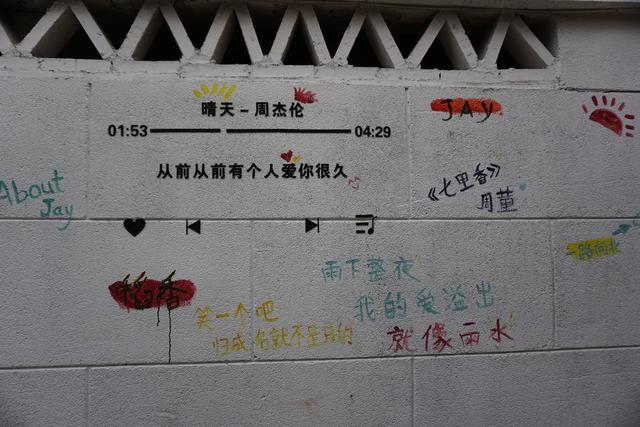 晴天 – 周杰伦
01:53 04:29
从前从前有个人爱你很久
JAY
《七里香》
周董
About
Jay
一路向北
稻香
笑一个吧
归成名就不是目的
雨下整夜
我的爱溢出
就像雨水